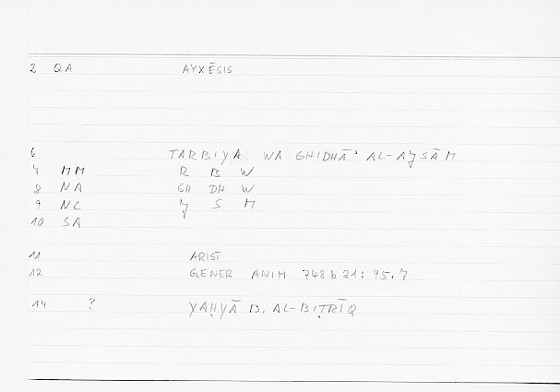 2 QA AYXĒSIS
6 TARBIYA: WA GHIDHĀ' AL-AJSĀM
7 MM R B W
8 NA GH DH W
9 NC J S M
10 SA
11 ARIST
12 GENER ANIM 748 b 21: 95.7
14 ? YAḤYĀ B. AL-BIṬRĪQ